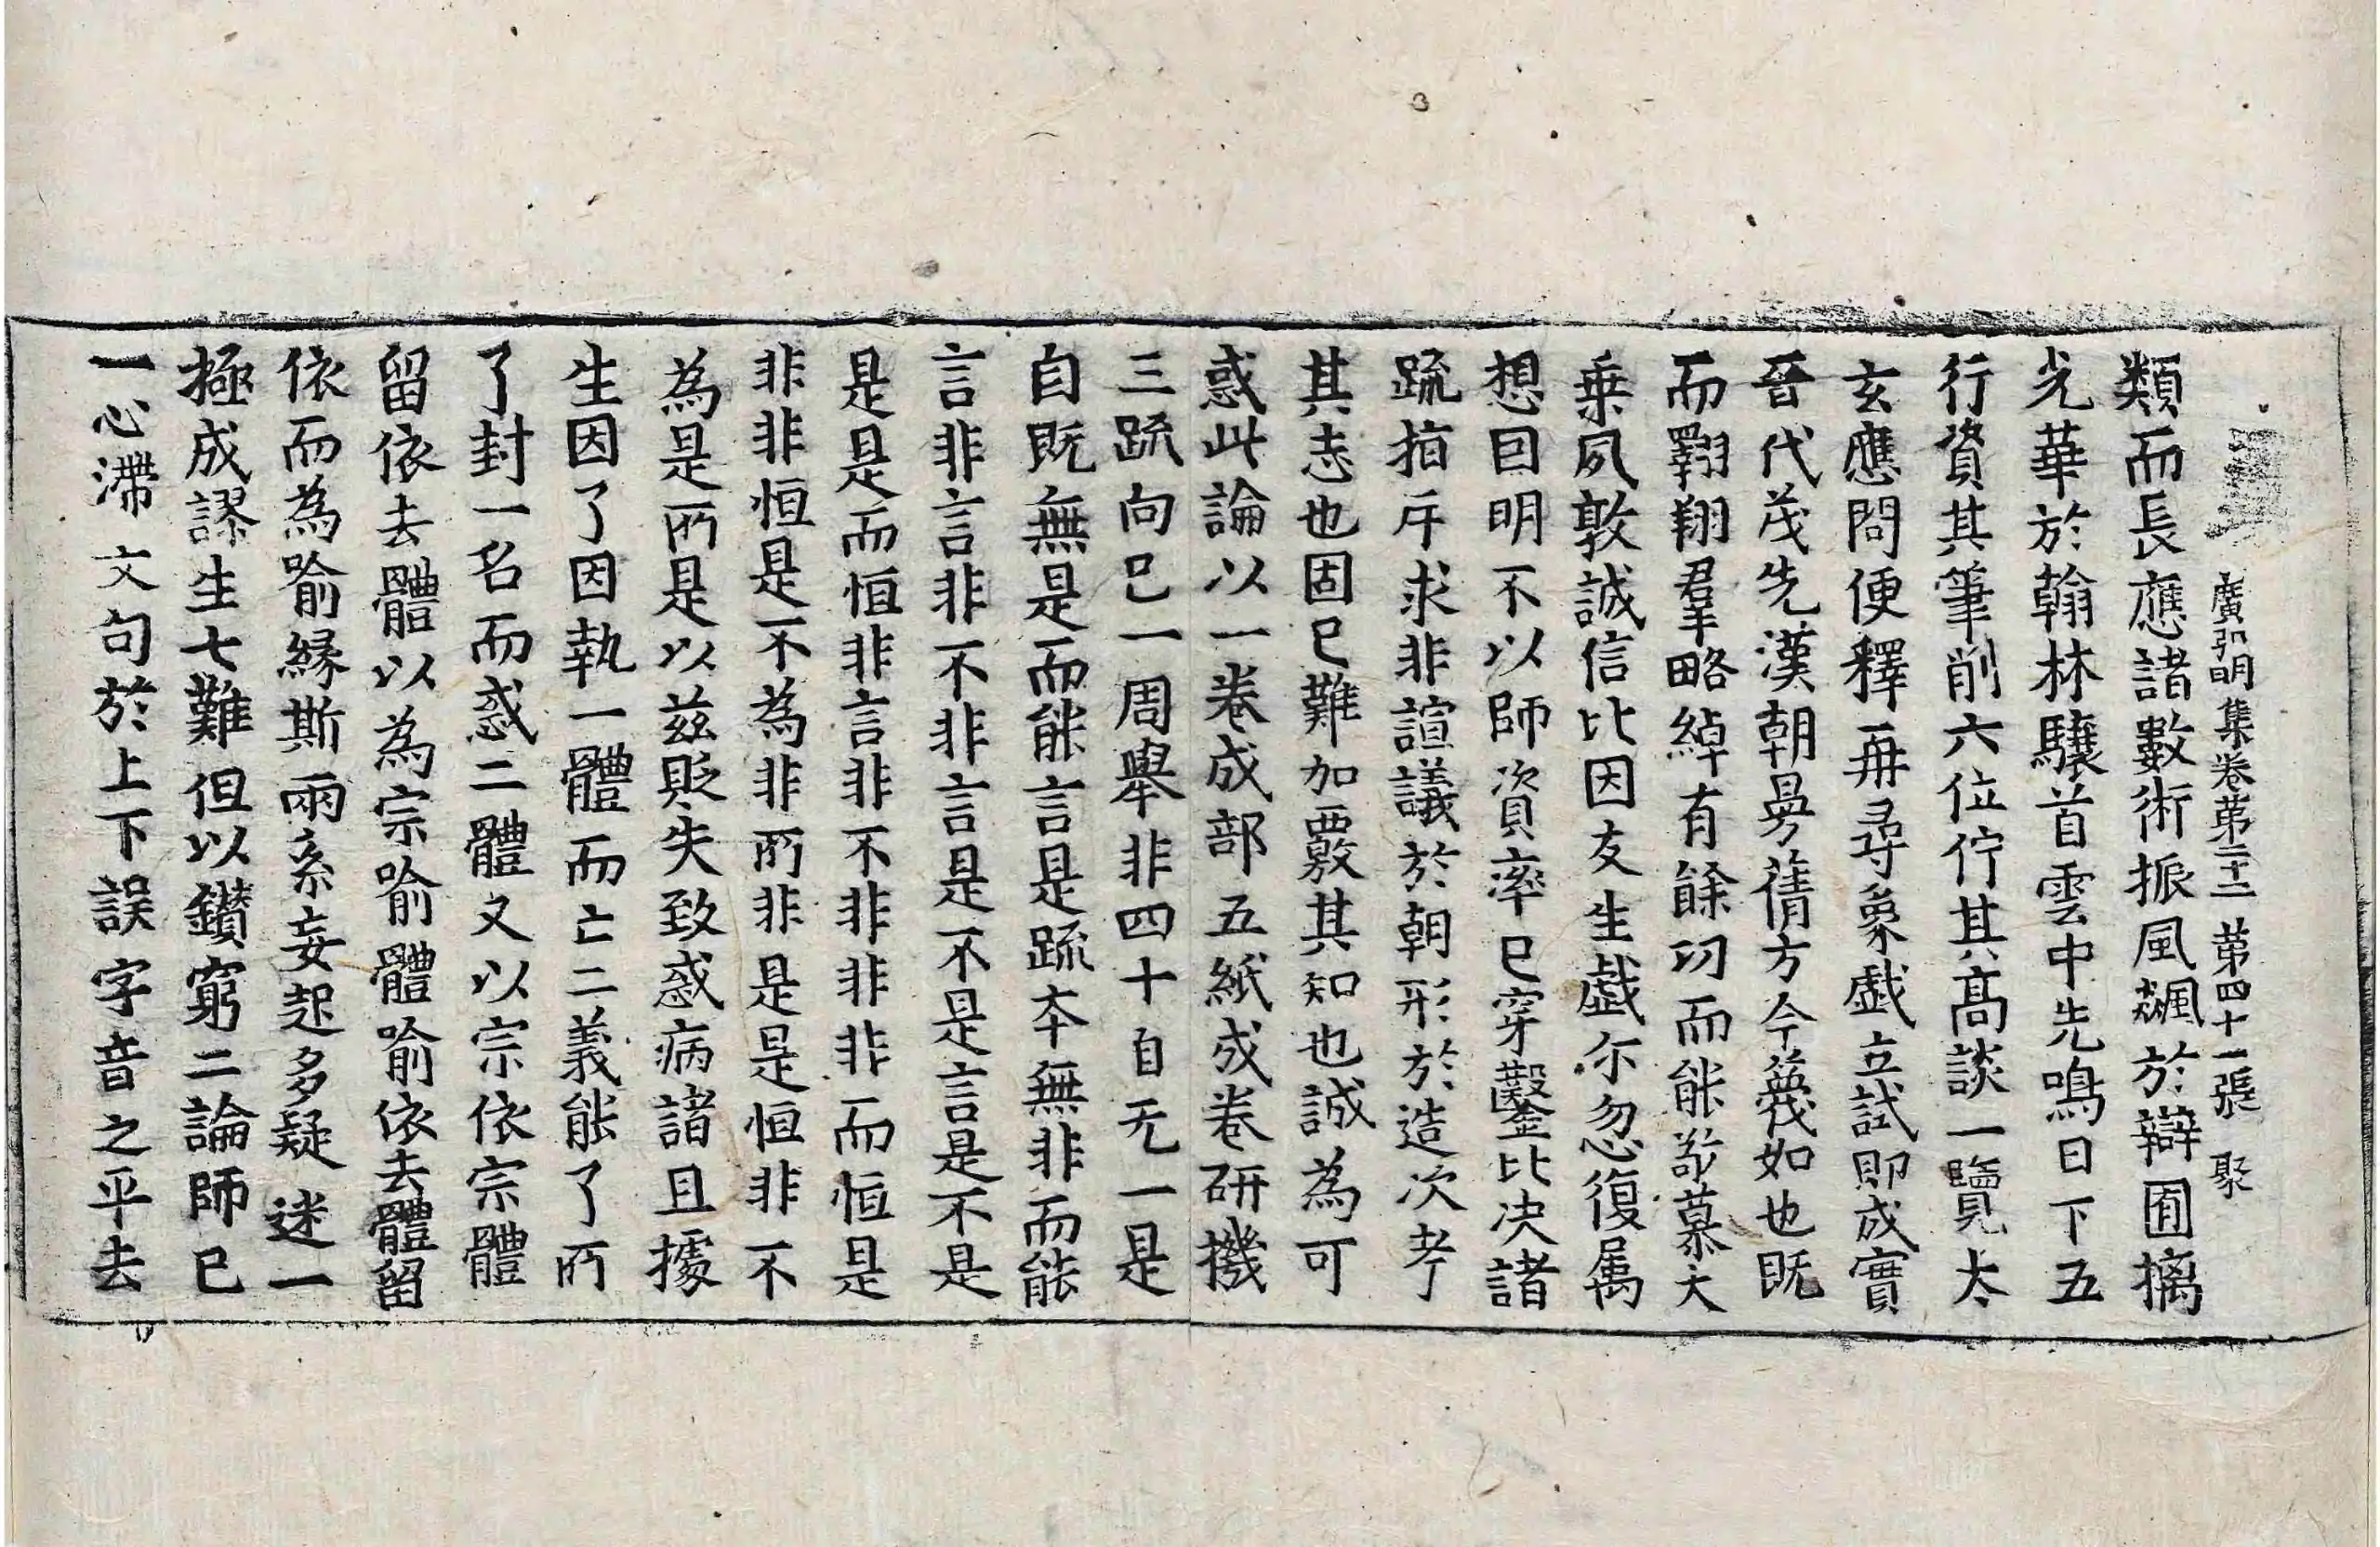 廣弘明集卷第二十二 第四十一張 聚
類而長應諸數術振風飆於辯囿摛
光華於翰林驤首雲中先鳴日下五
行資其筆削六位佇其髙談一覽太
玄應問便釋再尋象戯立試即成實
晉代茂先漢朝曼蒨方今蔑如也既
而翱翔羣略綽有餘功而能敬慕大
乗夙敦誠信比因友生戯尓忽復属
想因明不以師資率已穿鑿比决諸
疏指斥求非諠議於朝形於造次考
其志也固已難加覈其知也誠為可
惑此論以一卷成部五紙成卷研機
三疏向已一周舉非四十自无一是
自既無是而能言是疏夲無非而能
言非言非不非言是不是言是不是
是是而恒非言非不非非非而恒是
非非恒是不為非所非是是恒非不
為是所是以兹貶失致惑病諸且據
生因了因執一體而亡二義能了所
了封一名而惑二體又以宗依宗體
留依去體以為宗喻體喻依去體留
依而為喻縁斯兩系妄起多疑迷一
極成謬生七難但以鑚窮二論師已
一心滯文句於上下誤字音之平去